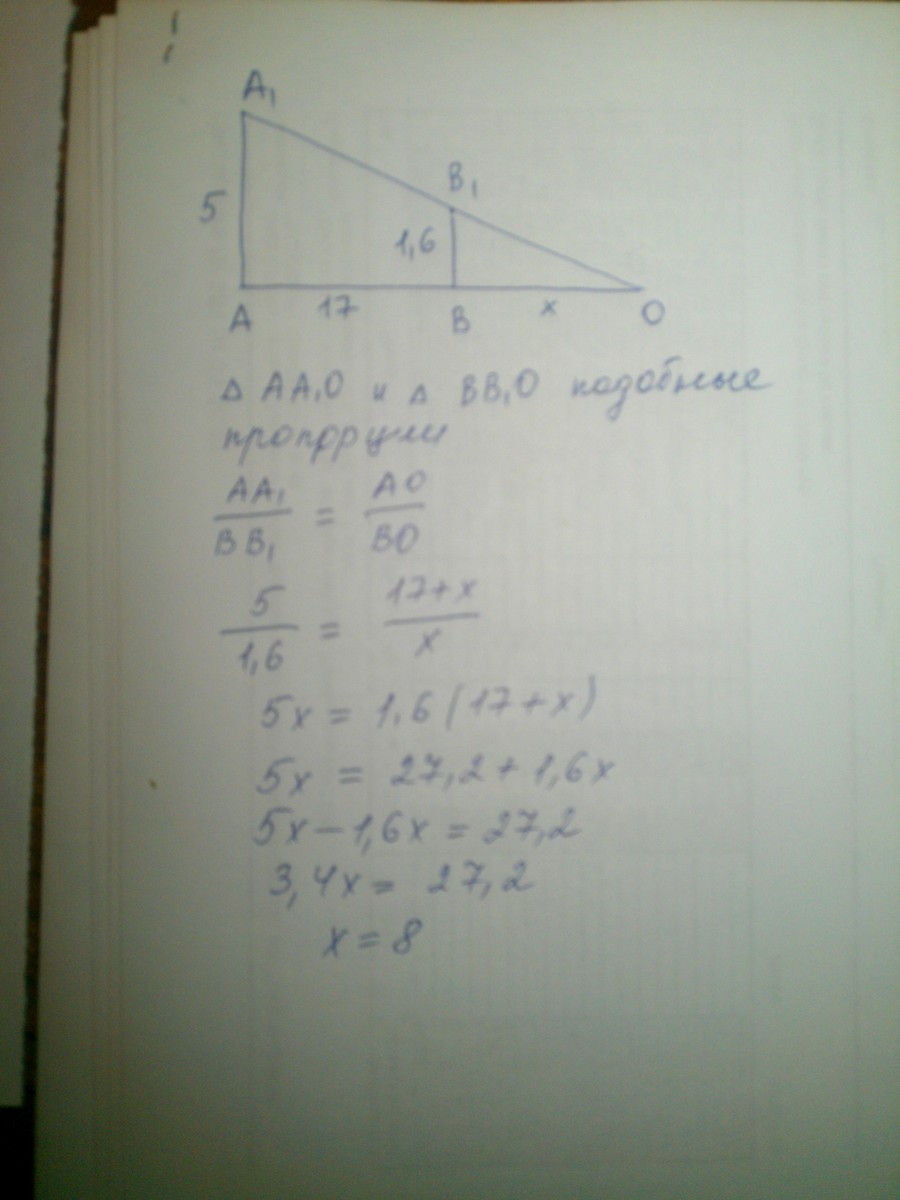 A₁
B₁
5
1,6
A 17 B x O
△ AA₁O и △ BB₁O подобные
пропорции
AA₁/BB₁ = AO/BO
5/1,6 = 17+x/x
5x = 1.6(17+x)
5x = 27,2+1,6x
5x-1,6x = 27,2
3,4x = 27,2
x = 8